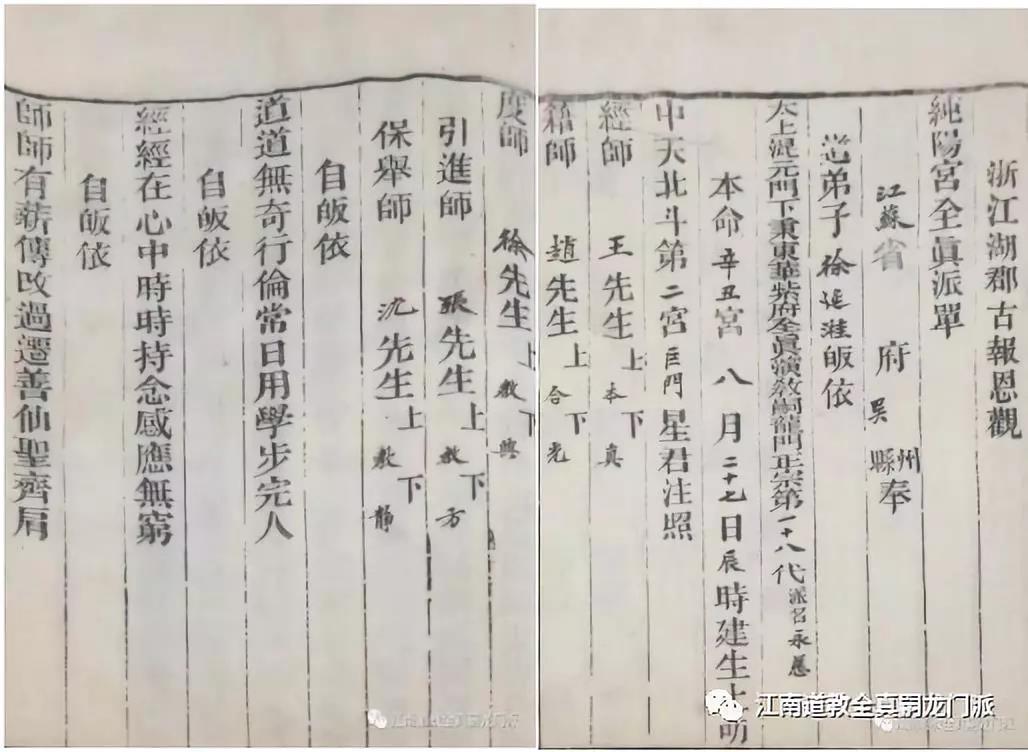 浙江湖郡古報恩觀
純陽宮全眞派單
江蘇省 府 吳 州縣奉
道弟子 徐 皈依
太上混元門下秉東華紫府全眞演敎嗣龍門正宗第一十八代派名永慈
本命辛丑宮 八月二十七日辰時建生上叨
中天北斗第二宮巨門星君注照
經師 王先生上本下真
籍師 趙先生上合下光
度師 徐先生上教下興
引進師 張先生上教下方
保舉師 沈先生上教下靜
自皈依
道道無奇行倫常日用學步完人
自皈依
經經在心中時時持念感應無窮
自皈依
師師有薪傳改過遷善仙聖齊肩
江南道教全真嗣龙门派
江南道教全真嗣龙门派